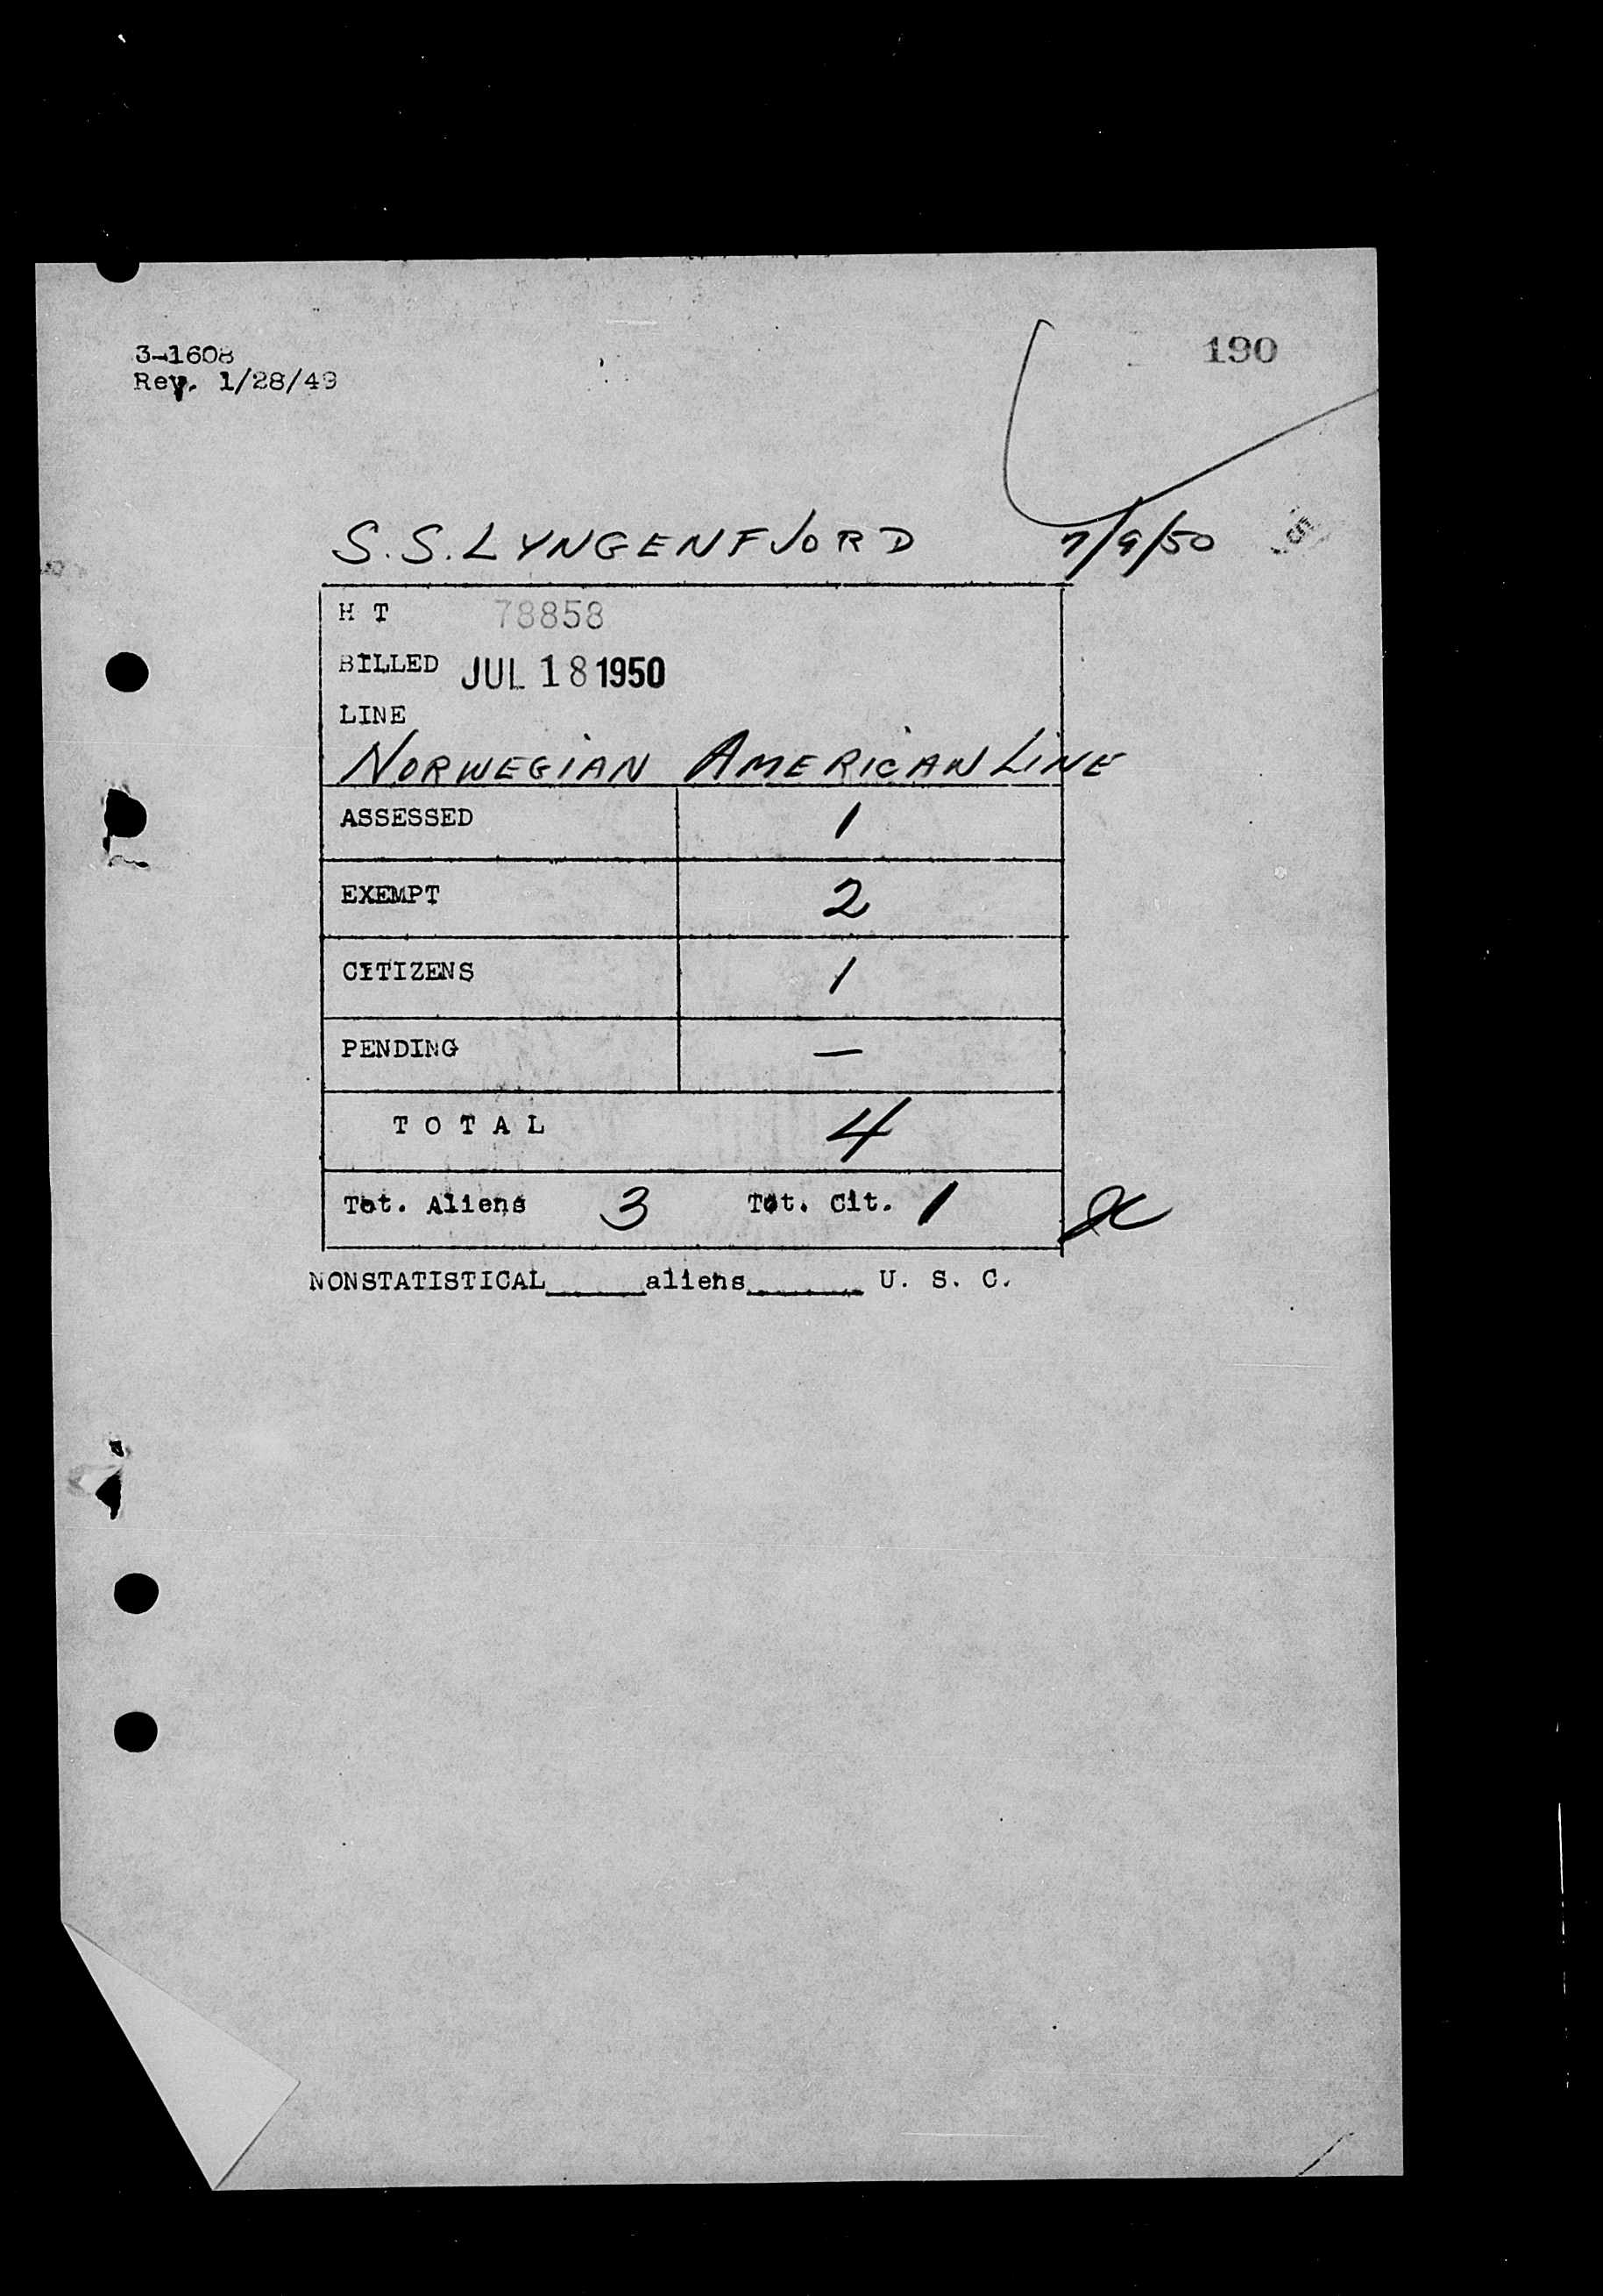 190
3-1608
Rev. 1/28/49
S.S. LYNGENFJORD 7/9/50
H T 78858
BILLED JUL 18 1950
LINE
NORWEGIAN AMERICAN LINE
ASSESSED 1
EXEMPT 2
CITIZENS 1
PENDING —
TOTAL 4
Tot. Aliens 3 Tot. Cit. 1
NONSTATISTICAL______aliens_______ U. S. C.